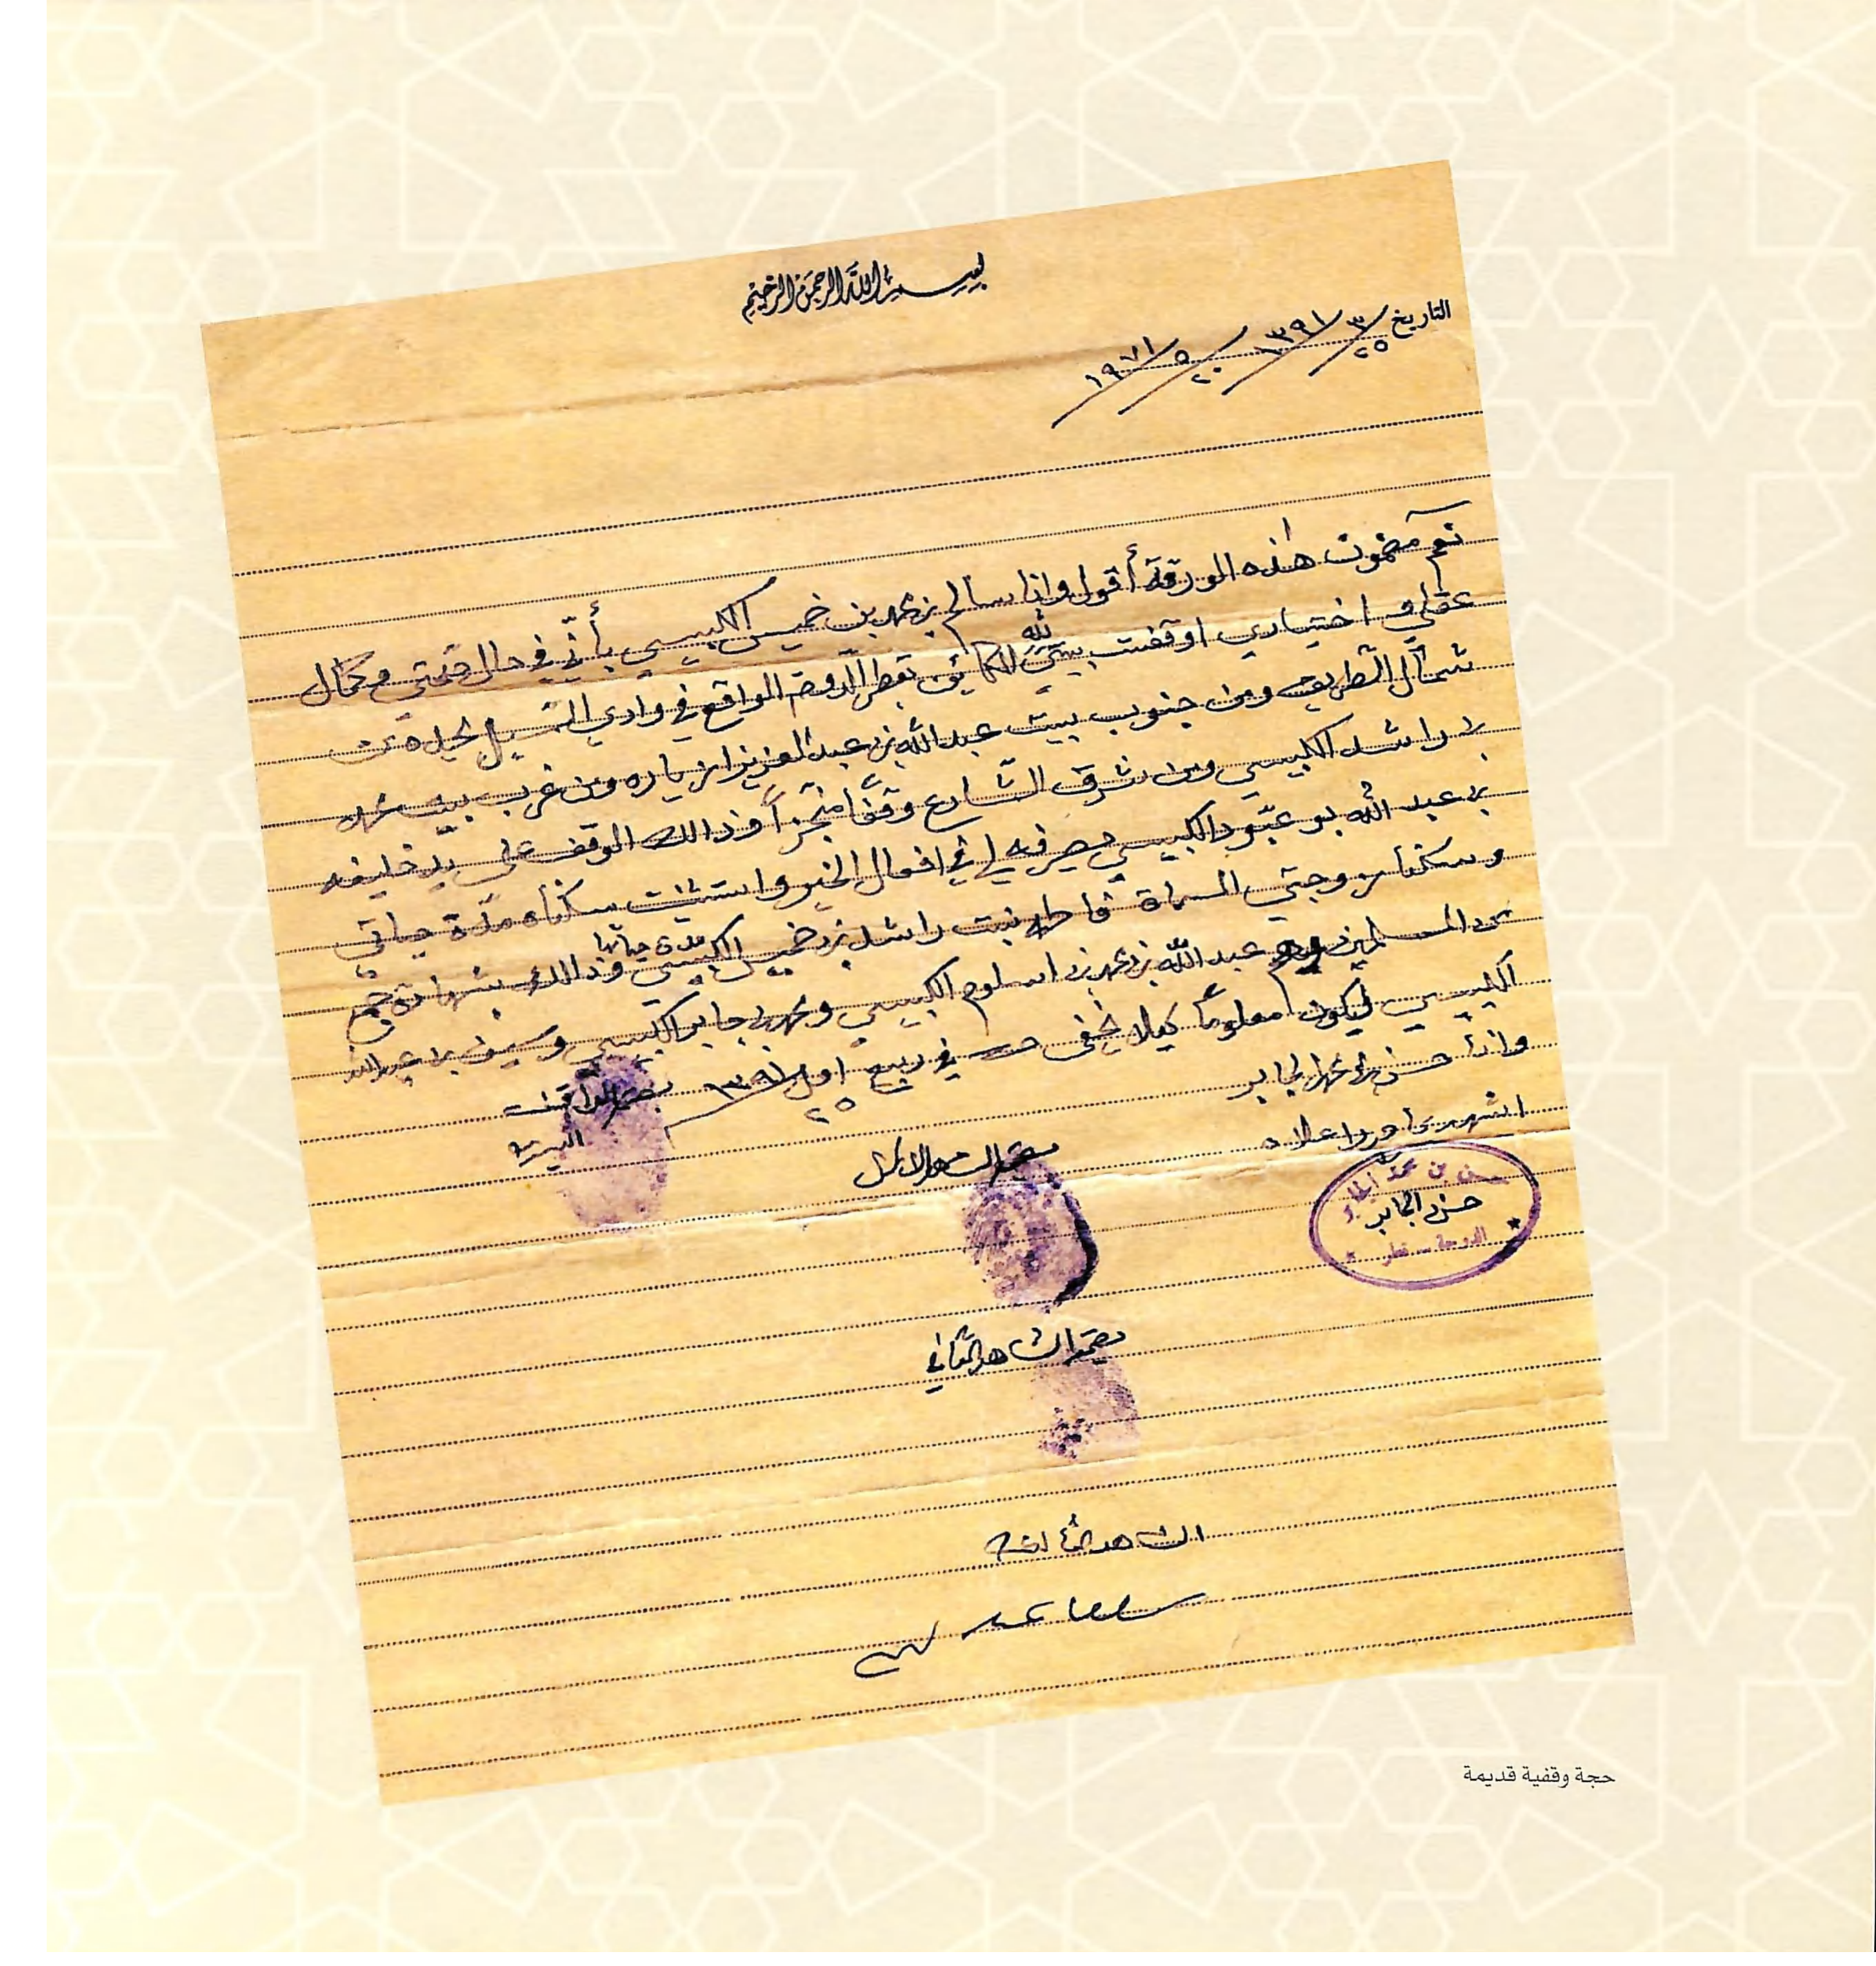 بسم الله الرحمن الرحيم
التاريخ ٢٥/٣/١٣٩١ ٢٠/٥/١٩٧١
نعم مضمون هذه الورقة أقول وانا سالم بن محمد بن خميس الكبيسي بأنّي في حال صحتي وكمال
عقلي واختياري اوقفت بيتي لله الكائن بقطر الدوحة الواقع في وادي السيل يحده من
شمال الطريق ومن جنوب بيت عبدالله بن عبدالعزيز ازياره ومن غرب بيت محمد
بن راشد الكبيسي ومن شرق الشارع وقفاً منجزاً وذالك الوقف على يد خليفه
بن عبد الله بو عبّود الكبيسي يصرفه لي في افعال الخير واستثنيت سكناه مدّة حياتي
وسكنا زوجتي المسماة فاطمه بنت راشد بن خميس الكبيسي مدة حياتها وذالك بشهادة جمع
من المسلمين عبدالله بن محمد بن اسلوم الكبيسي ومحمد بن جابر الكبيسي وسيف بن عبدالله
الكبيسي ليكون معلوماً كيلا يخفى في ربيع اول ٢٥ ١٣٩١
وانا حسن بن محمد الجابر
اشهد بما ورد اعلاه
بصمة الواقف
بصمة الشاهد الاول
حسن بن محمد الجابر
حسن الجابر
الدوحة - قطر
بصمة الشاهد الثاني
الشاهد الثالث
حجة وقفية قديمة